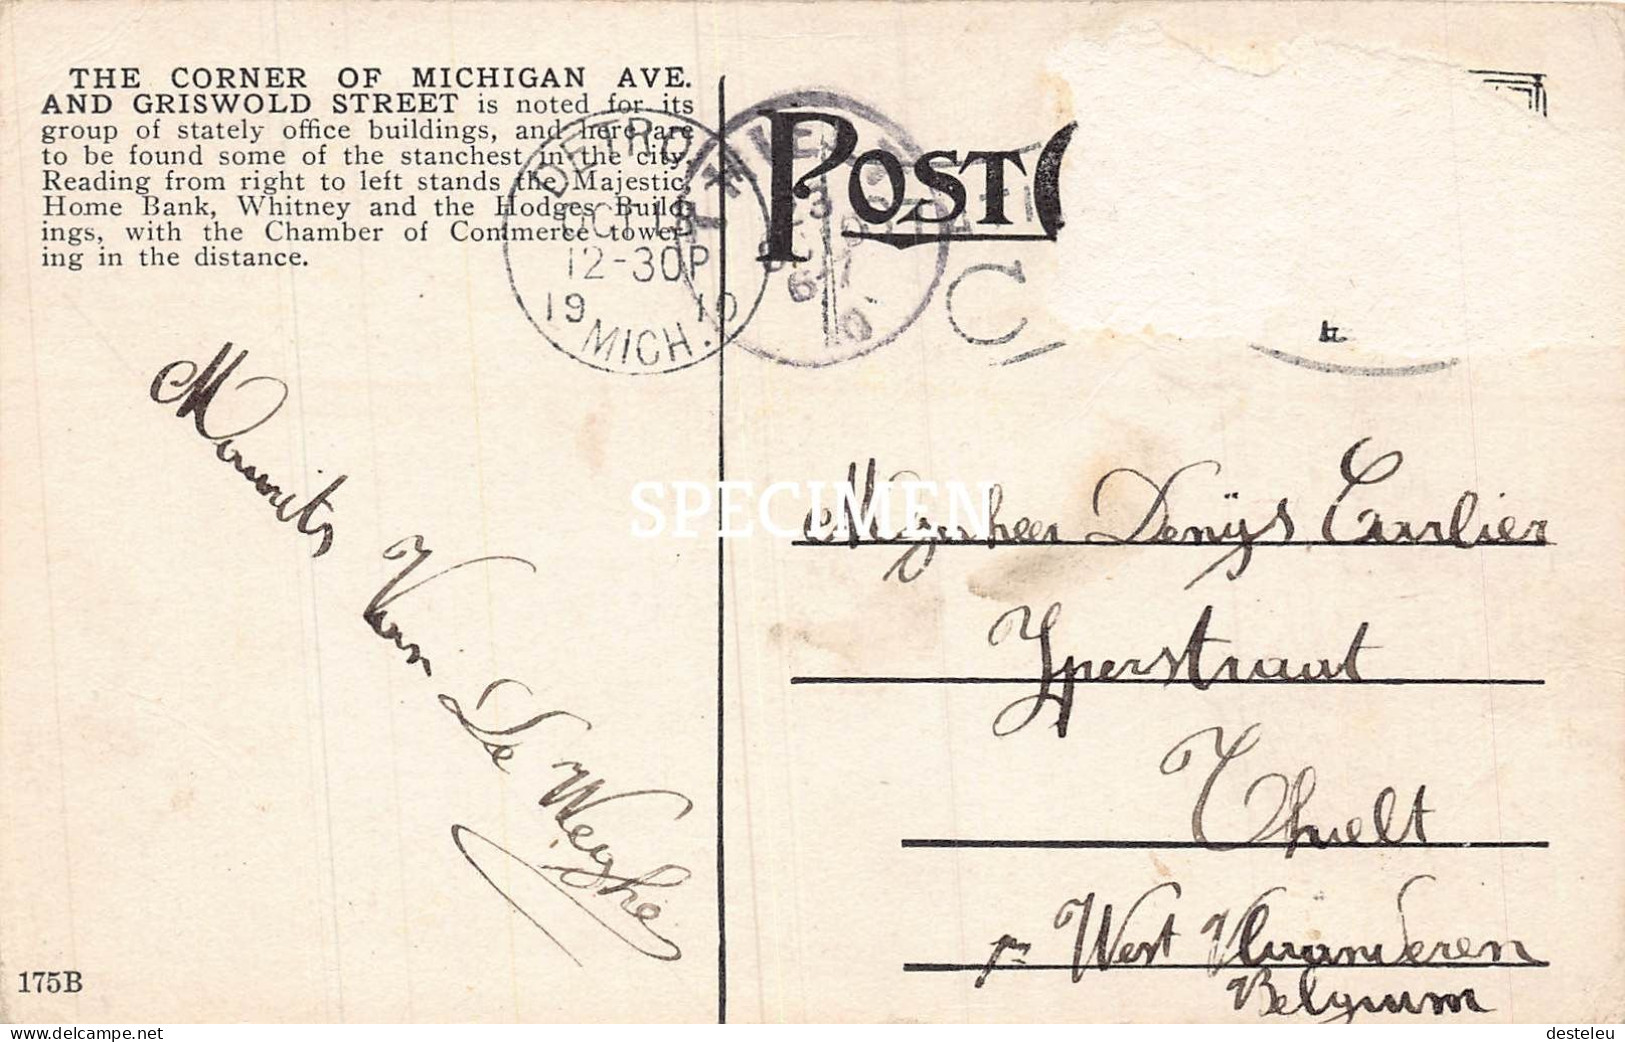 THE CORNER OF MICHIGAN AVE.
AND GRISWOLD STREET is noted for its
group of stately office buildings, and here are
to be found some of the stanchest in the city.
Reading from right to left stands the Majestic,
Home Bank, Whitney and the Hodges Build-
ings, with the Chamber of Commerce tower-
ing in the distance.
DETRO
OCT 13
12-30P
19 10
MICH.
THIELT
13
6-7
10
POST
Maurits Van De Weghe
SPECIMEN
Mijnheer Denijs Carlier
Yperstraat
Thielt
West Vlaanderen
Belgium
175B
delcampe.net
desteleu